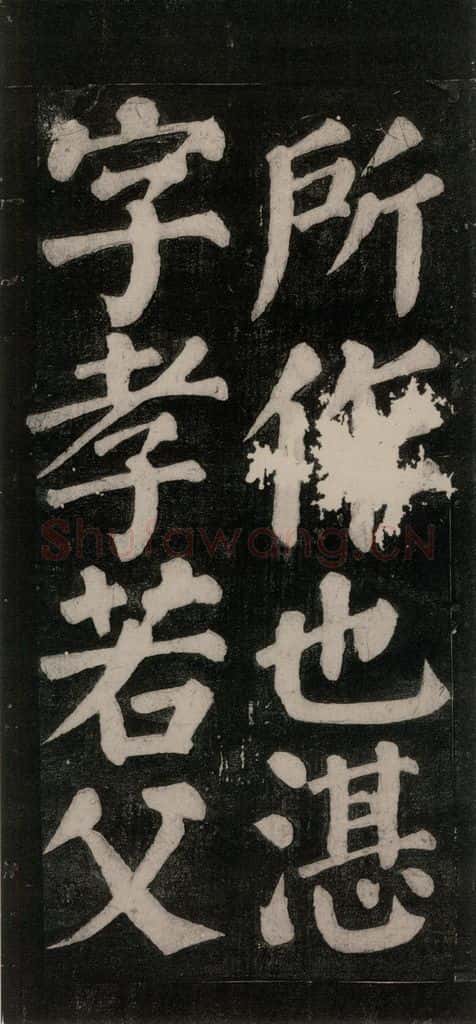 所作也湛
字孝若父
Shufawang.CN